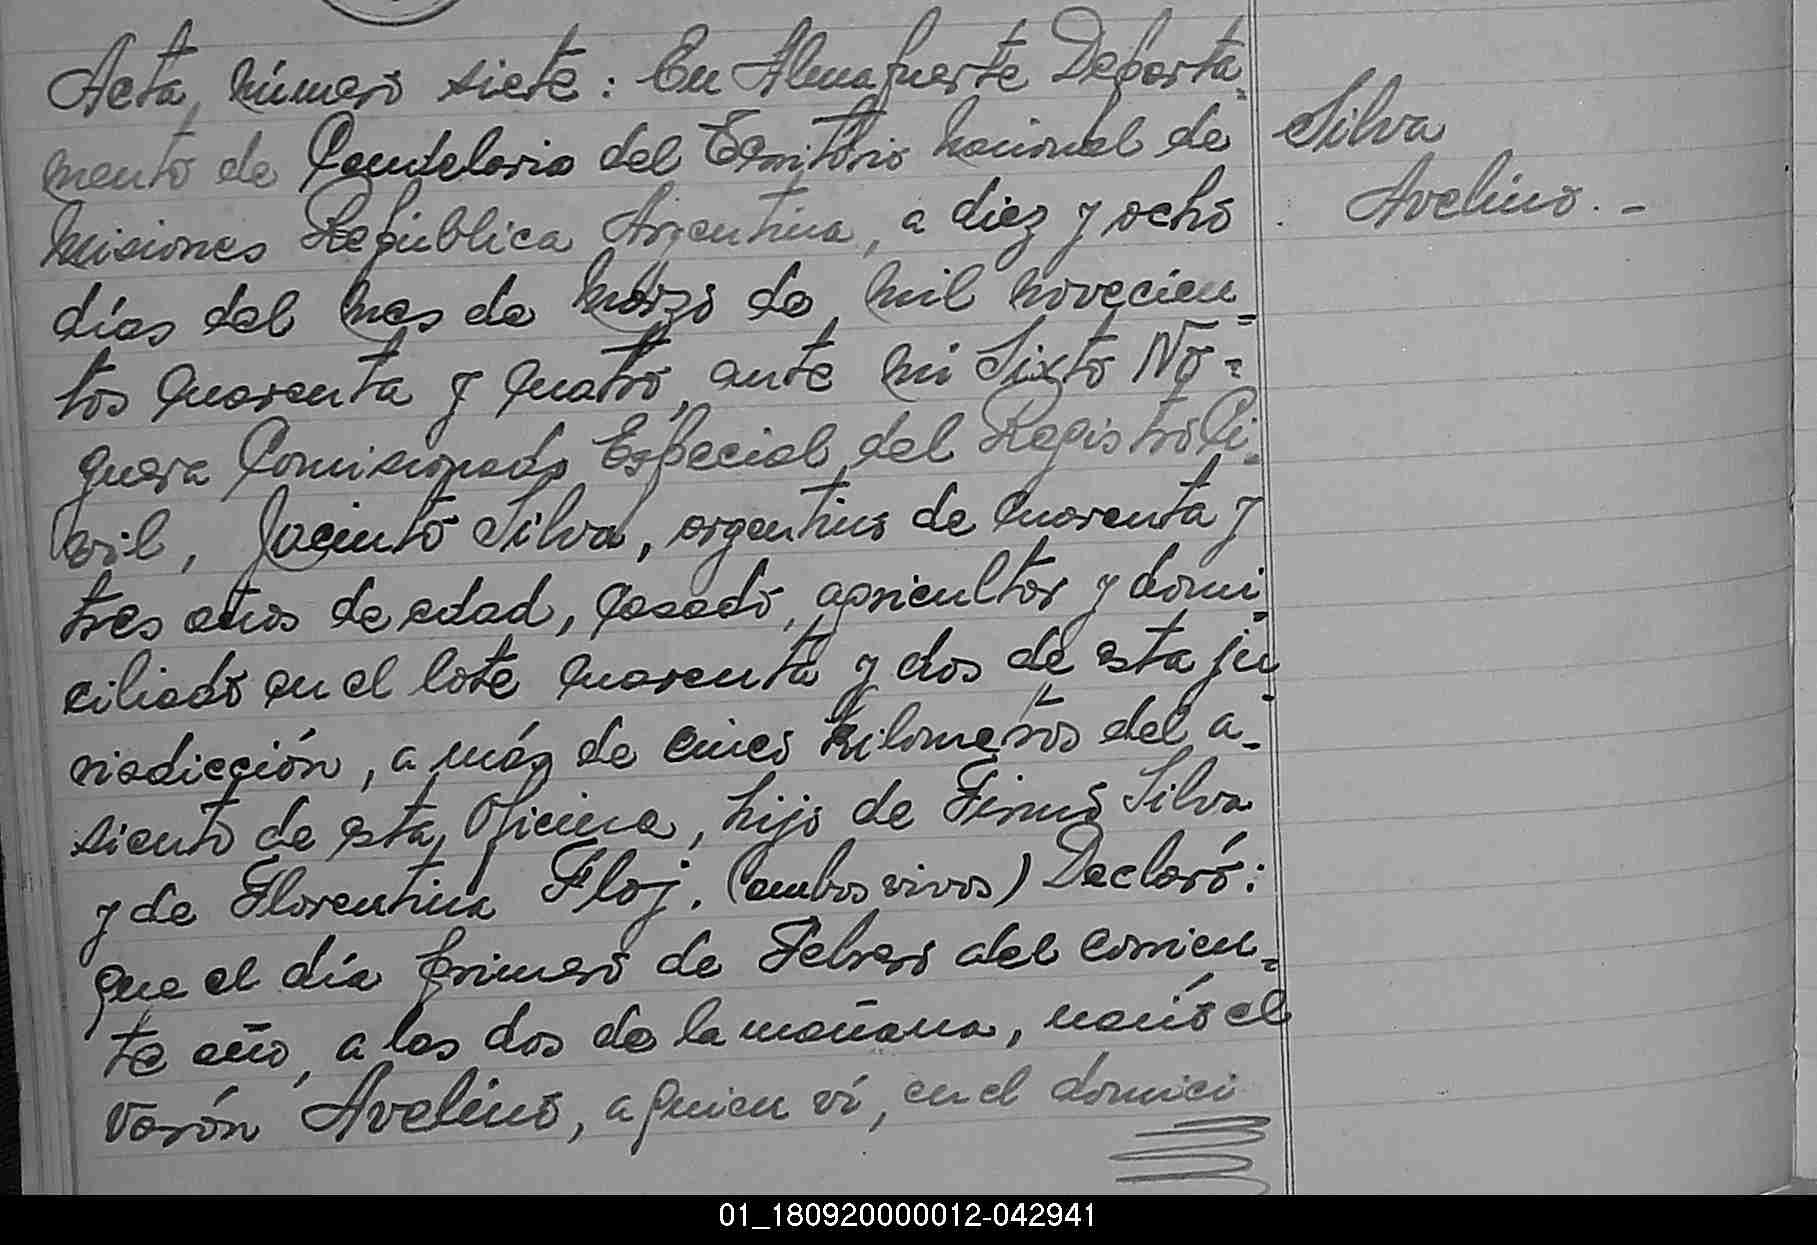 Acta número siete: En Almafuerte Departa-
mento de Candelaria del Territorio Nacional de
Misiones República Argentina, a diez y ocho
días del mes de Marzo de mil novecien-
tos cuarenta y cuatro, ante mi Sixto No-
guera Comisionado Especial del Registro Ci-
vil, Jacinto Silva, argentino de cuarenta y
tres años de edad, casado, agricultor y domi-
ciliado en el lote cuarenta y dos de esta ju-
risdicción, a más de cinco kilometros del a-
siento de esta Oficina, hijo de Firmo Silva
y de Florentina Floj. (ambos vivos) Declaró:
que el día primero de Febrero del corrien-
te año, a las dos de la mañana, nació el
varón Avelino, a quien ví, en el domici
Silva
Avelino.-
01_180920000012-042941